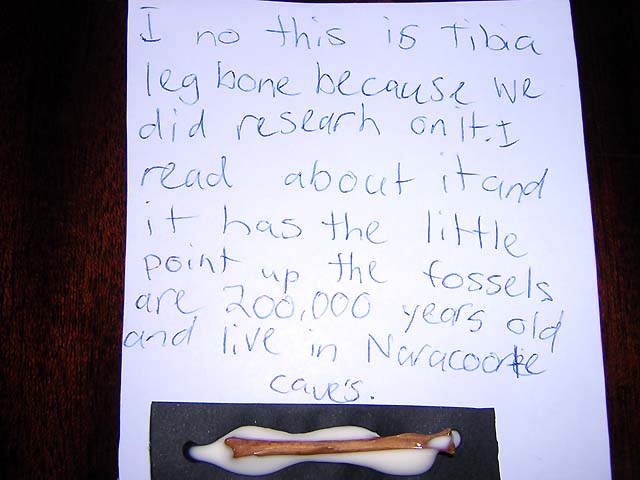 I no this is Tibia
leg bone because we
did researh on it. I
read about it and
it has the little
point up the fossels
are 200,000 years old
and live in Naracoorte
caves.